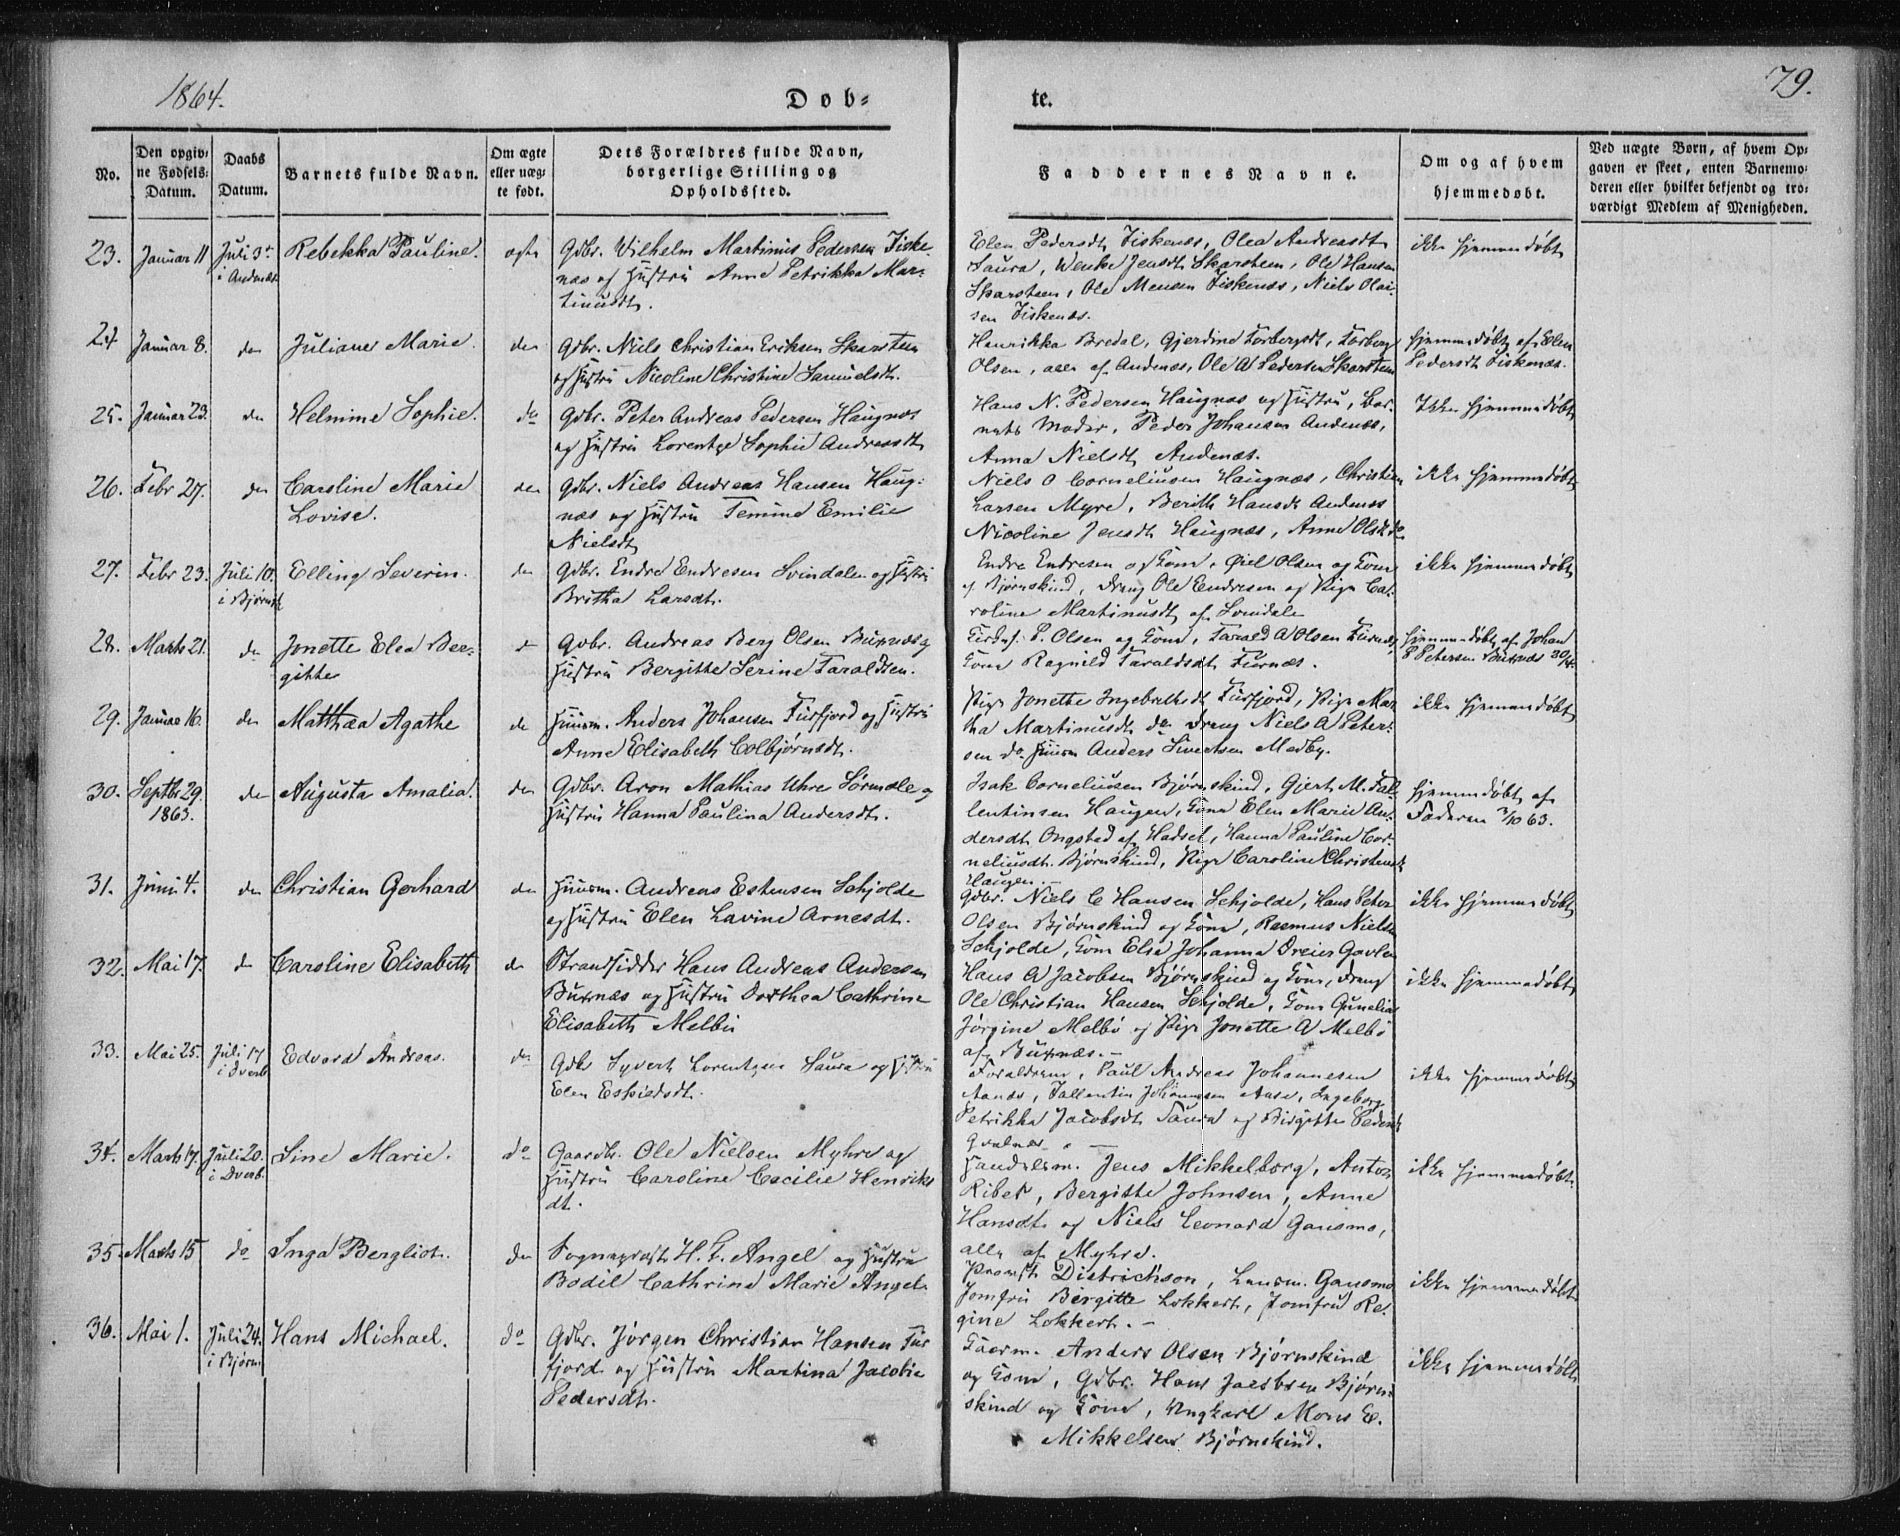 1864.
Døb-
te.
79.
No.
Den opgiv-
ne Fødsels-
Datum.
Daabs
Datum.
Barnets fulde Navn.
Om ægte
eller uæg-
te født.
Dets Forældres fulde Navn,
borgerlige Stilling og
Opholdssted.
Faddernes Navne.
Om og af hvem
hjemmedøbt.
Ved uægte Børn, af hvem Op-
gaven er skeet, enten Barnemo-
deren eller hvilket bekjendt og tro-
værdigt Medlem af Menigheden.
23. Januar 11 Juli 3. Rebekka Pauline. ægte Gdbr. Wilhelm Martinus Pedersen Fiske-
i Andenæs næs og Hustru Anne Petrikka Mar-
tinusdt.
Elen Pedersdt Fiskenæs, Olea Andreasdt
Saura, Wenke Jensdt Skarsteen, Ole Hansen
Skarsteen, Ole Mensen Fiskenæs, Niels Olai-
sen Fiskenæs.
ikke hjemmedøbt
24 Januar 8. do Juliane Marie do Gdbr. Niels Christian Eriksen Skarsteen
og Hustru Nicoline Christine Samuelsdt.
Henrikka Bredal, Gjerdine Torbergsdt, Torberg
Olsen, alle af Andenæs, Ole A Pedersen Skarsteen
hjemmedøbt af Elen
Pedersdt Fiskenæs.
25. Januar 23. do Helmine Sophie. do Gdbr. Peter Andreas Pedersen Haugnæs
og Hustru Lorentze Sophie Andreasdt
Hans N. Pedersen Haugnæs og Hustru, Bar-
nets Moder, Peder Johansen Andenæs,
Anna Nielsdt Andenæs.
Ikke hjemmedøbt
26. Febr 27. do Caroline Marie do Gdbr. Niels Andreas Hansen Haug-
Lovise. næs og Hustru Temine Emilie
Nielsdt
Niels O Corneliusen Haugnæs, Christian
Larsen Myre, Berith Hansdt Andenæs
Nicoline Jensdt Haugnæs, Anne Olsdt do
ikke hjemmedøbt
27. Febr 23. Juli 10. Elling Severin. do Gdbr. Endre Endresen Svindalen og Hustru
i Bjørnsk Britha Larsdt.
Endre Endresen og Kone, Olsen og Kone
af Bjørnskind, Dreng Ole Endresen og Pige Ca-
roline Martinusdt af Svindale
ikke hjemmedøbt
28. Marts 21. do Jonette Elea Ber- do Gdbr. Andreas Berg Olsen Buxnæs og
gitte Hustru Bergitte Serine Taraldsen.
P. Olsen og Kone, Tarald A Olsen Furnæs,
Kone Ragnild Taraldsdt Furnæs.
hjemmedøbt af Johan
P Petersen Buxnæs 30/4.
29. Januar 16. do Matthæa Agathe do Huusm. Anders Johansen Furfjord og Hustru
Anne Elisabeth Colbjørnsdt.
Pige Jonette Ingebrethsdt Furfjord, Pige Mar-
tha Martinusdt do Dreng Niels A Peter-
sen do Huusm Anders Sivertsen Medby.
ikke hjemmedøbt
30. Septb 29. do Augusta Amalia. do Gdbr. Aron Mathias Uhre Sørmele og
1863. Hustru Hanna Paulina Andersdt.
Isak Corneliusen Bjørnskind, Gjert M. Fal-
lentinsen Haugen, Kone Elen Marie An-
dersdt Ongstad af Hadsel, Hanna Pauline Cor-
neliusdt. Bjørnskind, Pige Caroline Christensdt
Haugen.—
hjemmedøbt af
Faderen 2/10 63.
31. Juni 4. do Christian Gerhard do Huusm. Andreas Estensen Schjolde
og Hustru Elen Lavine Arnesdt.
Gdbr. Niels C Hansen Schjolde, Hans Peter
Olsen Bjørnskind og Kone, Rasmus Nielsen
Schjolde, Kone Else Johanna Dreier Gavlen
ikke hjemmedøbt
32. Mai 17. do Caroline Elisabeth do Strandsidder Hans Andreas Andersen
Buxnæs og Hustru Dorthea Cathrine
Elisabeth Melbu
Hans A Jacobsen Bjørnskind og Kone, Dreng
Ole Christian Hansen Schjolde, Kone Gunelia
Jørgine Melbø og Pige Jonette A Melbø
af Buxnæs.—
ikke hjemmedøbt
33. Mai 25. Juli 17 Edvard Andreas. do Gdbr Syvert Lorentzen Saura og Hustru
i Dverb Elen Eskiedsdt.
Forældrene, Paul Andreas Johannesen
Aanes, Fallentin Johannesen Aase, Ingeborg
Petrikka Jacobsdt Saura og Birgitte Pedersdt
—
ikke hjemmedøbt
34. Marts 17. Juli 20. Sine Marie. do Gaardbr. Ole Nielsen Myhre og
i Dverb. Hustru Caroline Cecilie Henriks
dt.
Handelsm. Jens Mikkelborg, Anton
Riber, Bergitte Johnsen, Anne
Hansdt og Niels Leonard Gausmo,
alle af Myhre.
ikke hjemmedøbt.
35. Marts 15 do Inga Bergliot. do Sognepræst H. G. Angel og Hustru
Bodil Cathrine Marie Angel.
Provst Districhson, Lensm. Gausmo
Jomfru Birgitte Lokkert, Jomfru Re-
gine Lokkert.—
ikke hjemmedøbt
36. Mai 1. Juli 24. Hans Michael. do Gdbr. Jørgen Christian Hansen Fur-
i Bjørn fjord og Hustru Martina Jacobia
Pedersdt.
Gaarm. Anders Olsen Bjørnskind
og Kone, Gdbr. Hans Jacobsen Bjørn-
skind og Kone, Ungkarl Mons E.
Mikkelsen Bjørnskind.
ikke hjemmedøbt